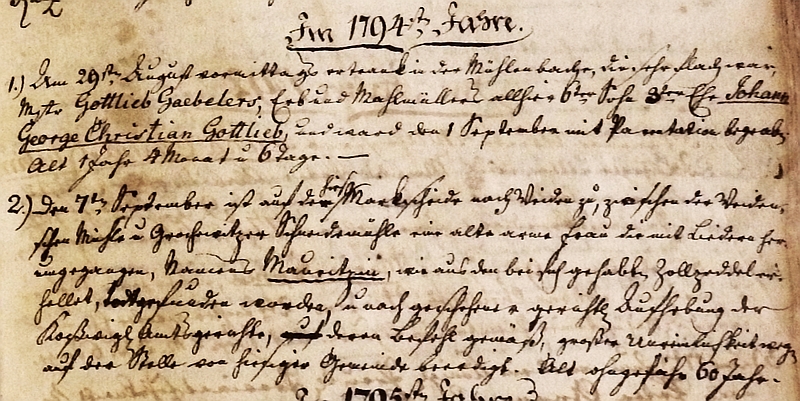 Im 1794ste Jahre.
1.) Am 29ste August vormittags ertrank in der Mühlenbache, die sehr flach war,
Mstr Gottlieb Gaebelers, Erb und Mahlmüllers allhier 6ter Sohn 3ter Ehe Johann
George Christian Gottlieb, und ward den 1 September mit Parentation begraben
Alt 1 Jahr 4 Monat u 6 Tage. —
2.) Den 7te September ist auf der Markscheide nach Veiden zu, zwischen der Veiden-
schen Mühle u Grochwitzer Schneidemühle eine alte arme Frau die mit Liedern her-
umgegangen, Namens Mauritzin, wie aus den bei sich gehabten Zollzeddel er-
hellet, todt gefunden worden, u nach geschehener gerichtl. Aufhebung der
Amtsgerichte, deren Befehl gemäß, großer Unreinlichkeit wegen
auf der Stelle von hiesiger Gemeinde beerdigt. Alt ohngefähr 60 Jahr.
Im 1795ste Jahre